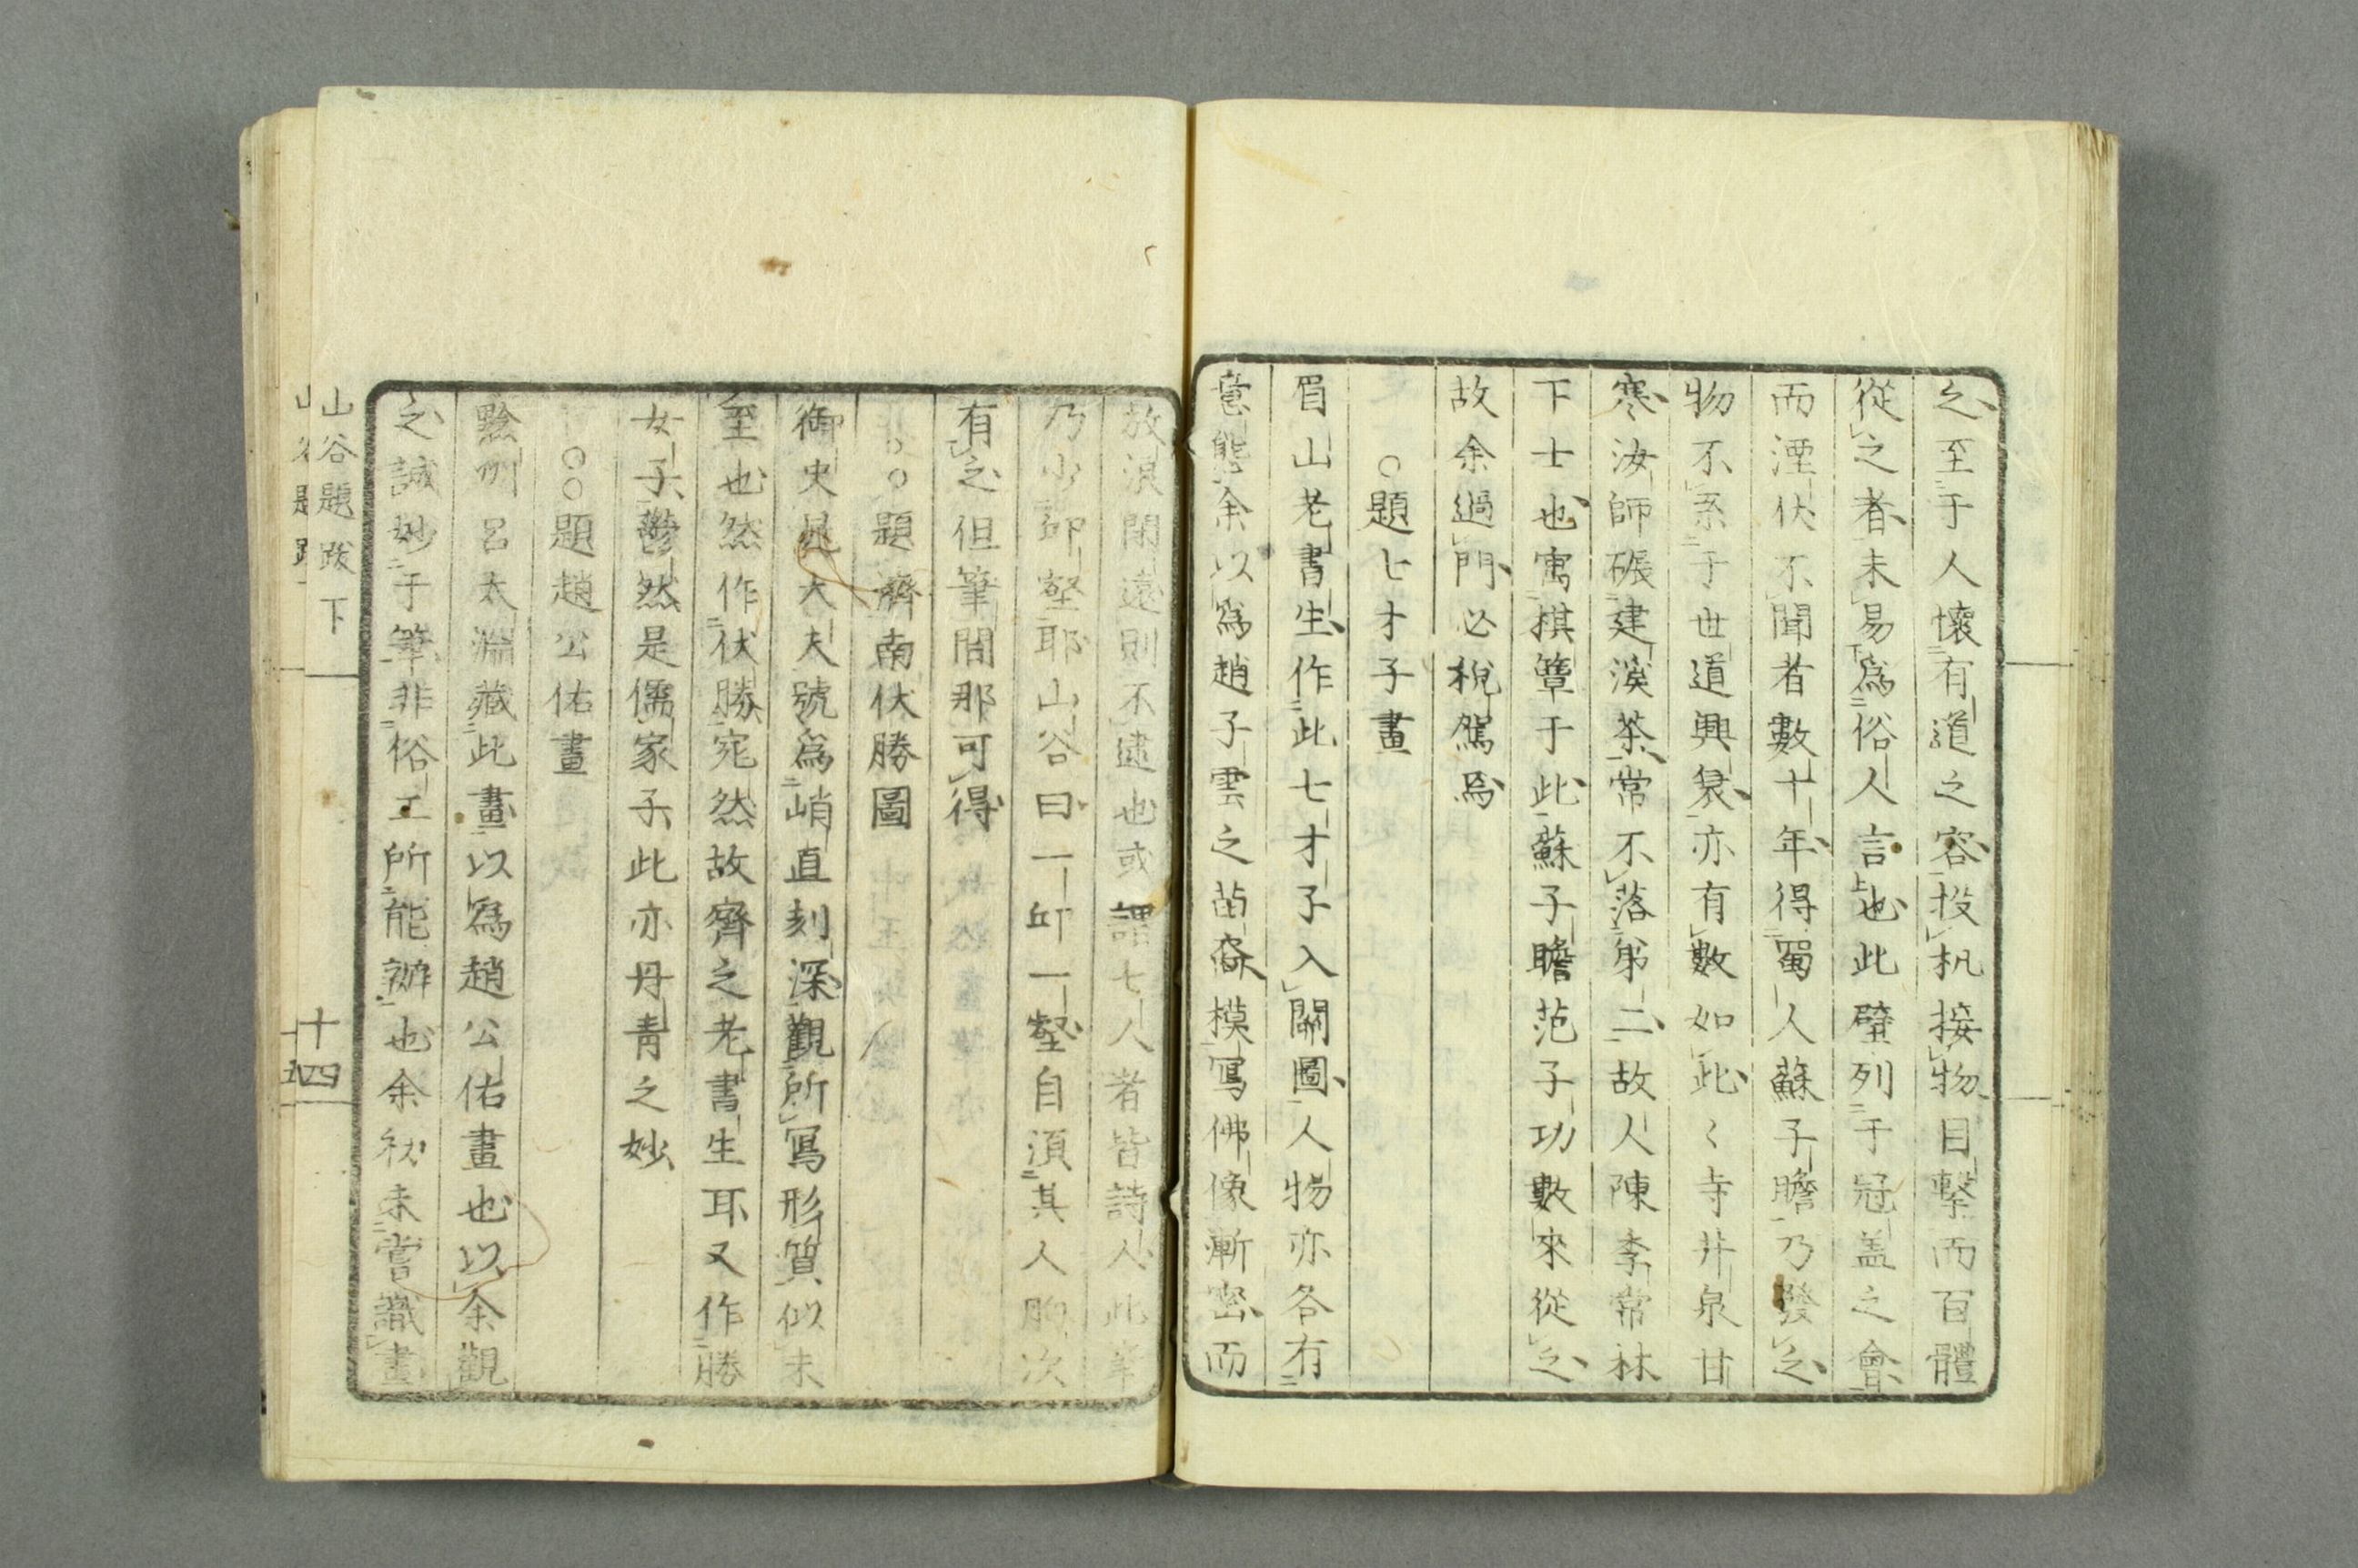 之至于人懷有道之容投机接物目擊而百體
從之者未易爲俗人言也此壁列于冠盖之會
而湮伏不聞者數十年得蜀人蘇子瞻乃發之
物不系于世道興衰亦有數如此〻寺井泉甘
寒汝師碾建溪茶常不落第二故人陳季常林
下士也寓棋簟于此蘇子瞻范子功數來從之
故余過門必稅駕焉
○題七才子畫
眉山老書生作此七才子入關圖人物亦各有
意態余以爲趙子雲之苗裔模寫佛像漸密而
放浪閑遠則不逮也或謂七人者皆詩人此筆
乃少邱壑耶山谷曰一邱一壑自須其人胸次
有之但筆間那可得
○○題濟南伏勝圖
御史晁大夫號爲峭直刻深觀所寫形質似未
至也然作伏勝宛然故齊之老書生耳又作勝
女子鬱然是儒家子此亦丹青之妙
○○題趙公佑畫
黔州呂太淵藏此畫以爲趙公佑畫也以余觀
之誠妙于筆非俗工所能辦也余初未嘗識畫
山谷題跋 下
十四